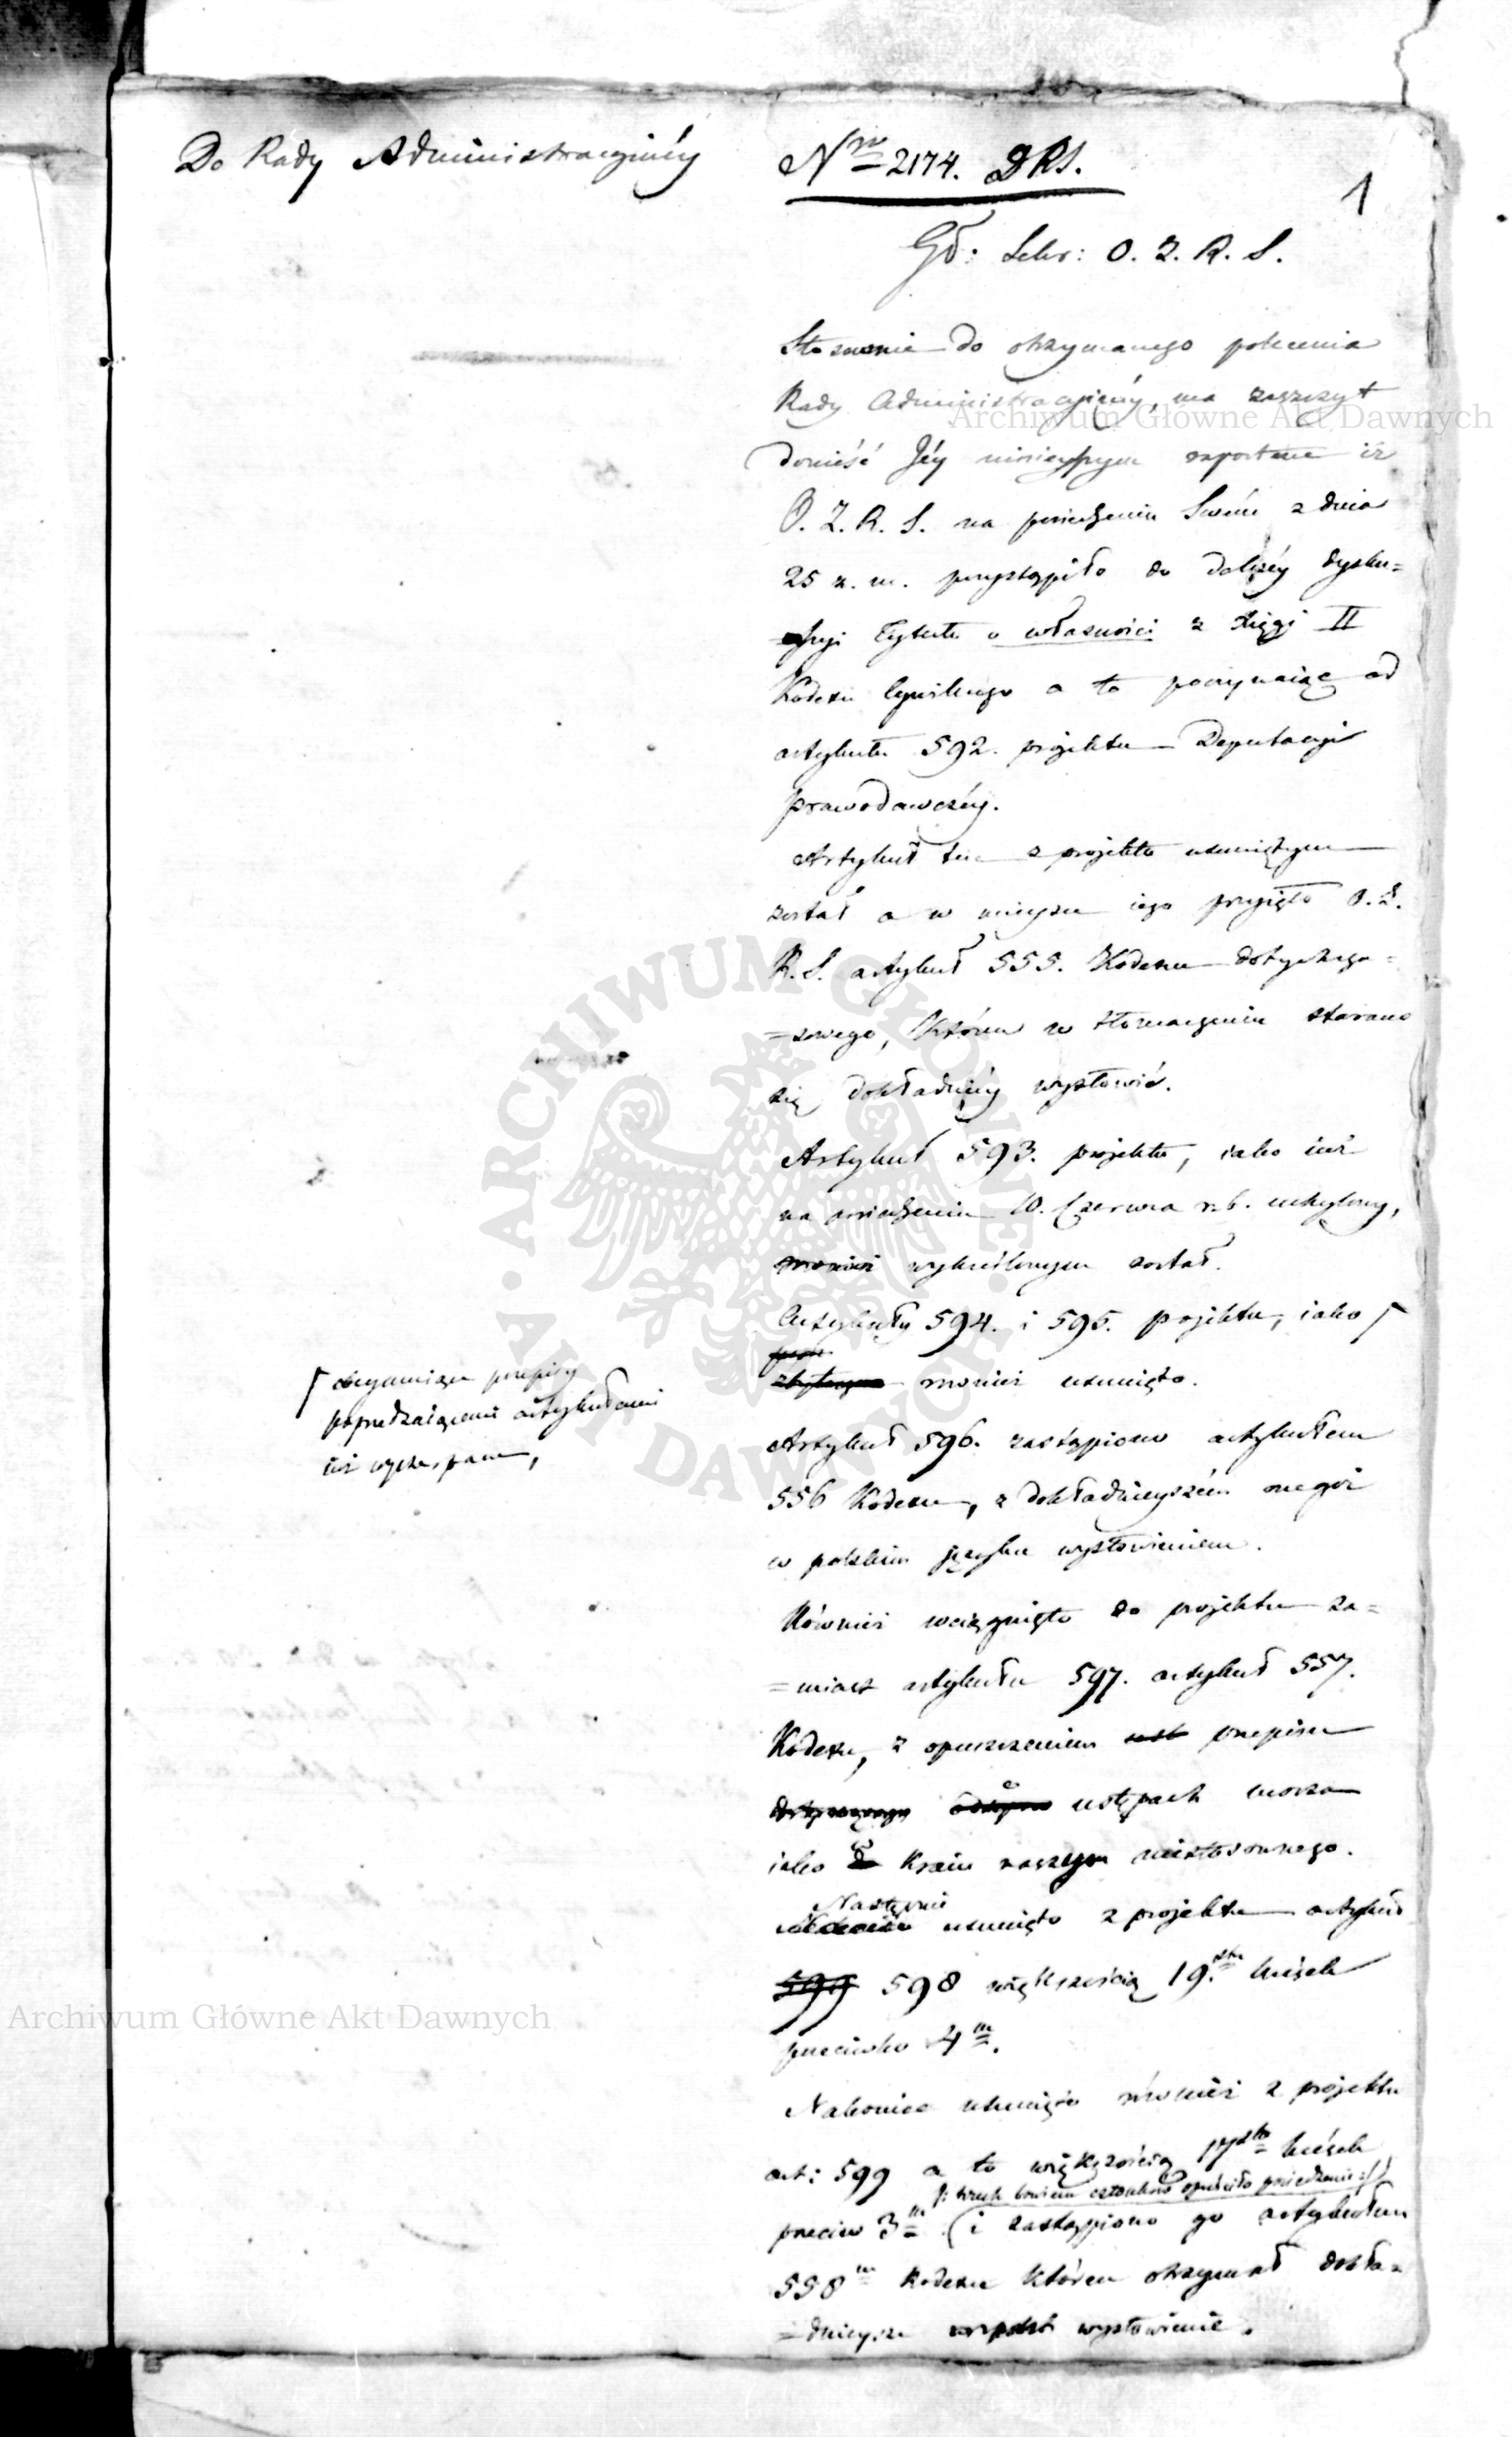 Do Rady Administracyinéy
Nro 2174. DRS.
1
Gł: Sekr: O. Z. R. S.
Stosownie do otrzymanego polecenia
Rady Administracyinéy, ma zaszczyt
donieść Jéy ninieyszym raportem iż
O. Z. R. S. na posiedzeniu Swém z dnia
25 z. m. przystąpiło do dalszéy dysku=
ssyi Tytułu o własności z Xięgi II
Kodexu Cywilnego a to poczynaiąc od
artykułu 592. projektu Deputacyi
prawodawczéy.
Artykuł ten z projektu usuniętym
został a w mieysce iego przyięto O. Z.
R. S. artykuł 555. Kodexu dotychcza=
=sowego, który w tłomaczeniu starano
się dokładniéy wysłowić.
Artykuł 593. projektu, iako iuż
na posiedzeniu 10. Czerwca r. b. uchylony,
również wykreślonym został.
Artykuły 594. i 595. projektu, iako
zbyteczne również usunięto.
obeymuiące przepisy
poprzedzaiącemi artykułami
iuż wyczerpane,
Artykuł 596. zastąpiono artykułem
556 Kodexu, z dokładnieyszém onegoż
w polskim języku wysłowieniem.
Również wciągnięto do projektu za=
=miast artykułu 597. artykuł 557.
Kodexu, z opuszczeniem ust przepisu
o ustępach morza
iako w kraiu naszym niestosownego.
Następnie
usunięto z projektu artykuł
599 598 większością 19.stu kresek
przeciwko 4m.
Nakoniec usunięto również z projektu
art: 599 a to większością 17stu kresek
/: trzech bowiem członków opuściło posiedzenie :/
przeciw 3m (i zastąpiono go artykułem
558m Kodexu który otrzymał dokła=
=dnieysze wysłowienie.
Archiwum Główne Akt Dawnych
ARCHIWUM GŁÓWNE AKT DAWNYCH
Archiwum Główne Akt Dawnych